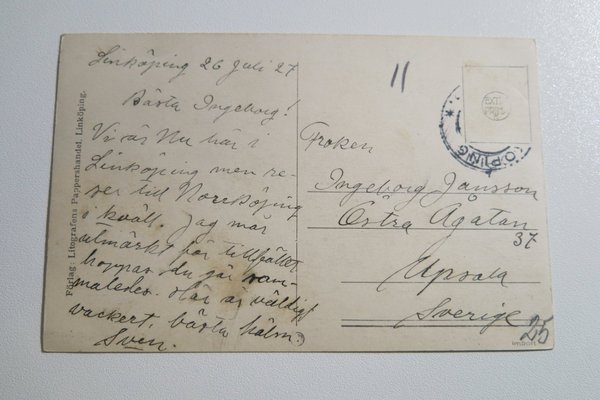 Linköping 26 Juli 27
Bästa Ingeborg!
Vi är Nu här i
Linköping men re-
ser till Norrköping
i kväll. Jag mår
utmärkt för tillfället
hoppas du gör sam-
maledes. Här är väldigt
vackert. bästa hälsn.
Sven.
Förlag: Litografens Pappershandel, Linköping.
11
KÖPING
Fröken
Ingeborg Jansson
Östra Ågatan
37
Upsala
Sverige
25